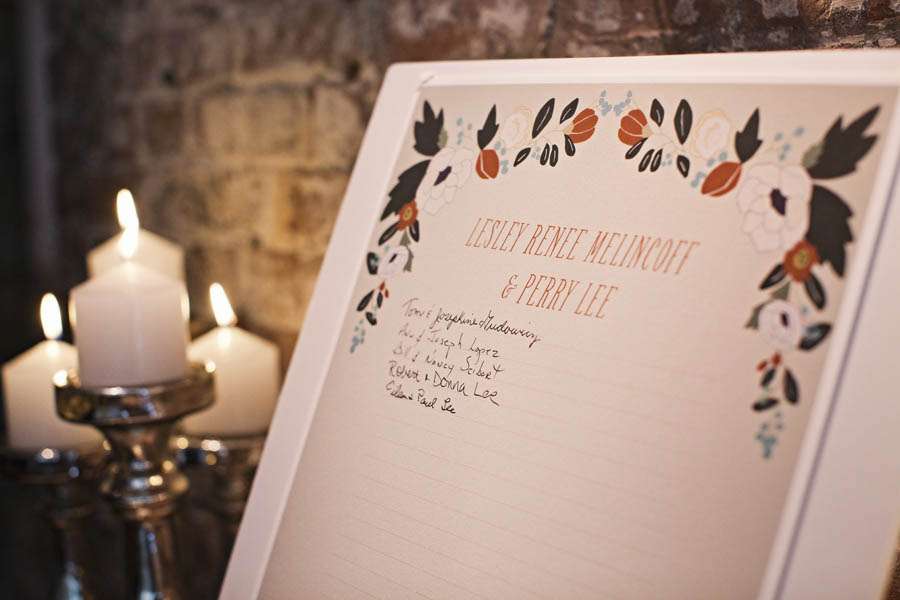 LESLEY RENEE MELINCOFF
& PERRY LEE
Tom & Josephine
& Joseph Lopez
Bill & Nancy Seibert
Robert & Donna Lee
& Paul Lee